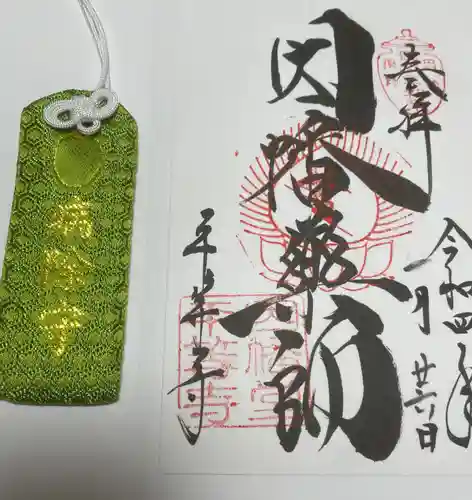 奉拝
令和四年
一月廿六日
因幡薬師
平等寺
病除守